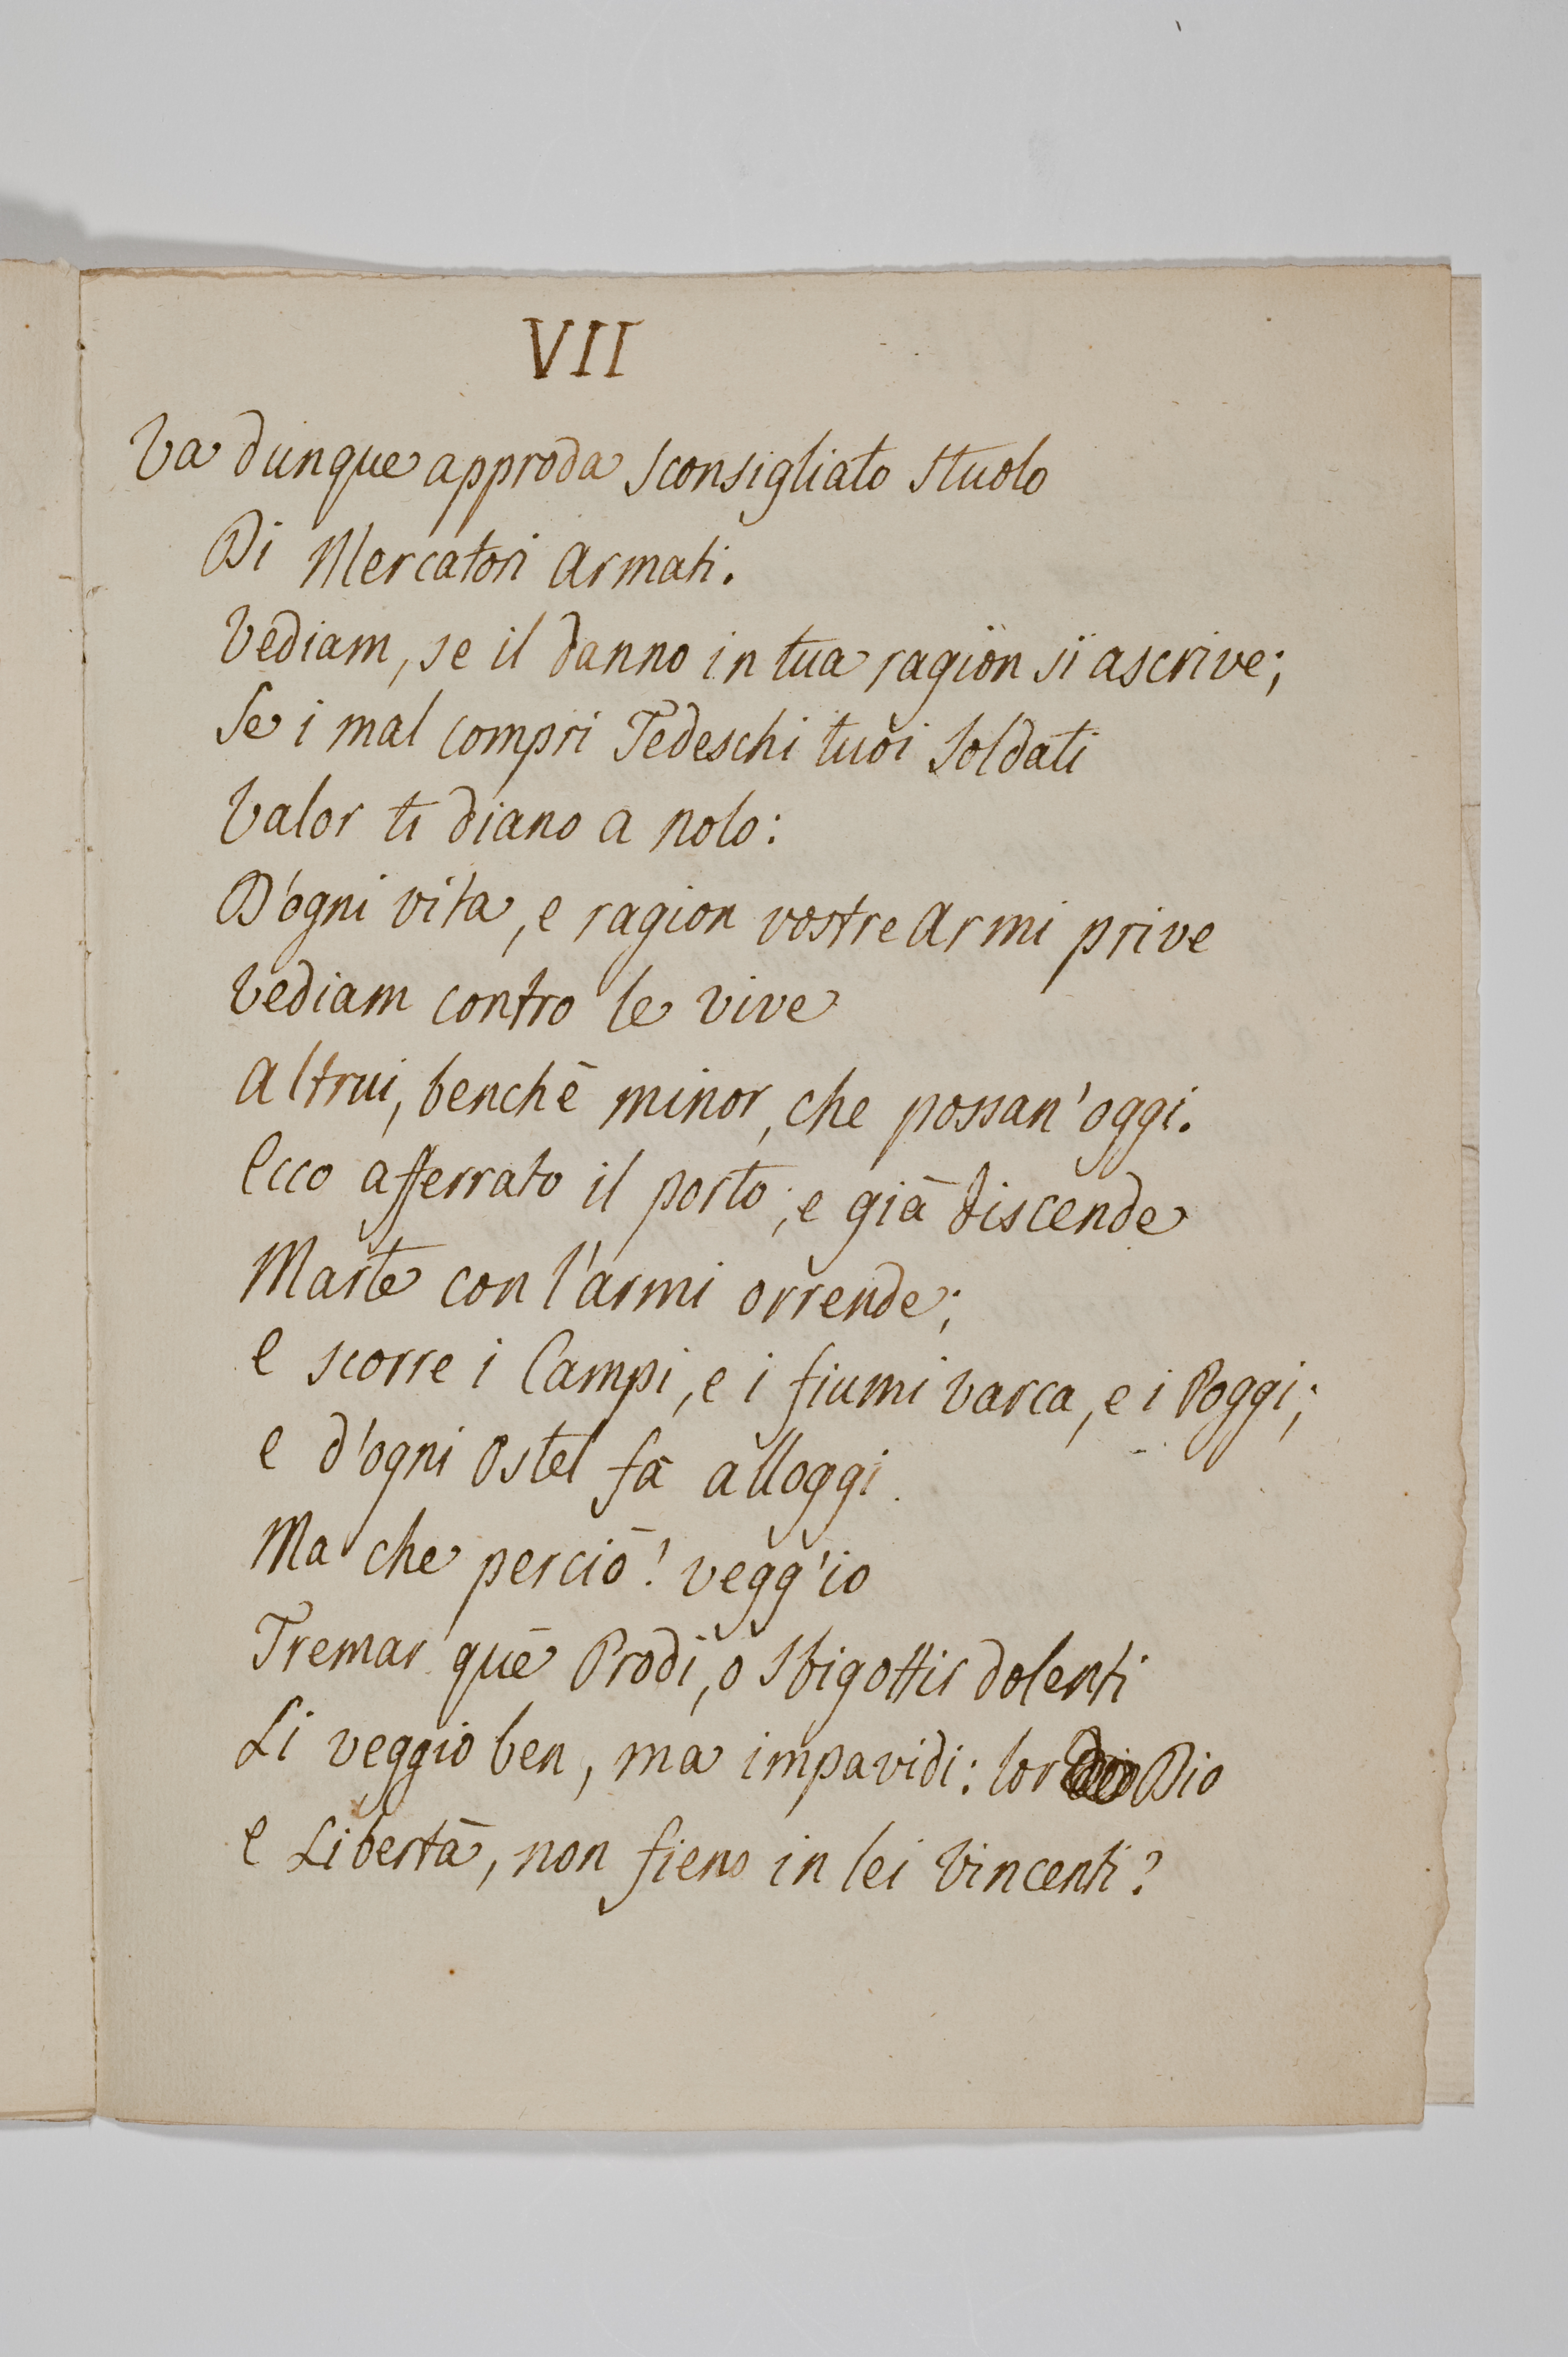 VII
Va dunque approda sconsigliato stuolo
Di Mercatori armati.
Vediam, se il danno in tua ragion si ascrive;
Se i mal compri Tedeschi tuoi Soldati
Valor ti diano a nolo:
D'ogni vita, e ragion vostre armi prive
Vediam contro le vive
Altrui, benchè minor, che possan' oggi.
Ecco afferrato il porto; e già discende
Marte con l'armi orrende;
E scorre i Campi, e i fiumi varca, e i Poggi;
E d'ogni Ostel fà alloggi.
Ma che perciò! vegg'io
Tremar què Prodi, o sbigottir dolenti
Li veggio ben, ma impavidi: lor Dio
E Libertà, non fieno in lei vincenti?